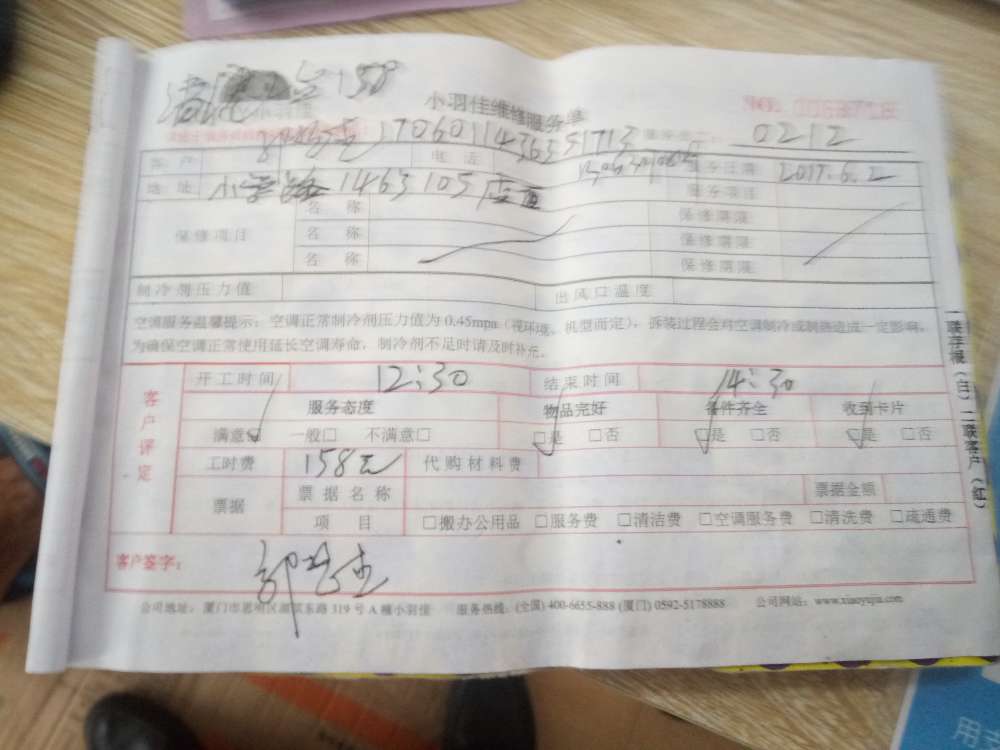 158
小羽佳维修服务单
0212
客户 电话 服务日期 2017.6.2
地址 1463 105 服务项目
保修项目 名称 保修期限
名称 保修期限
名称 保修期限
制冷剂压力值 出风口温度
空调服务温馨提示：空调正常制冷剂压力值为0.45mpa（视环境、机型而定），拆装过程会对空调制冷或制热造成一定影响。
为确保空调正常使用延长空调寿命，制冷剂不足时请及时补充。
客户评定
开工时间 12:30 结束时间 14:30
服务态度 物品完好 备件齐全 收到卡片
满意□ 一般□ 不满意□ □是 □否 □是 □否 □是 □否
工时费 158元 代购材料费
票据 票据名称 票据金额
项目 □搬办公用品 □服务费 □清洁费 □空调服务费 □清洗费 □疏通费
客户签字：
公司地址：厦门市思明区湖滨东路319号A幢小羽佳 服务热线：(全国) 400-6655-888 (厦门) 0592-5178888 公司网站：www.xiaoyujia.com
一联存根（白）二联客户（红）